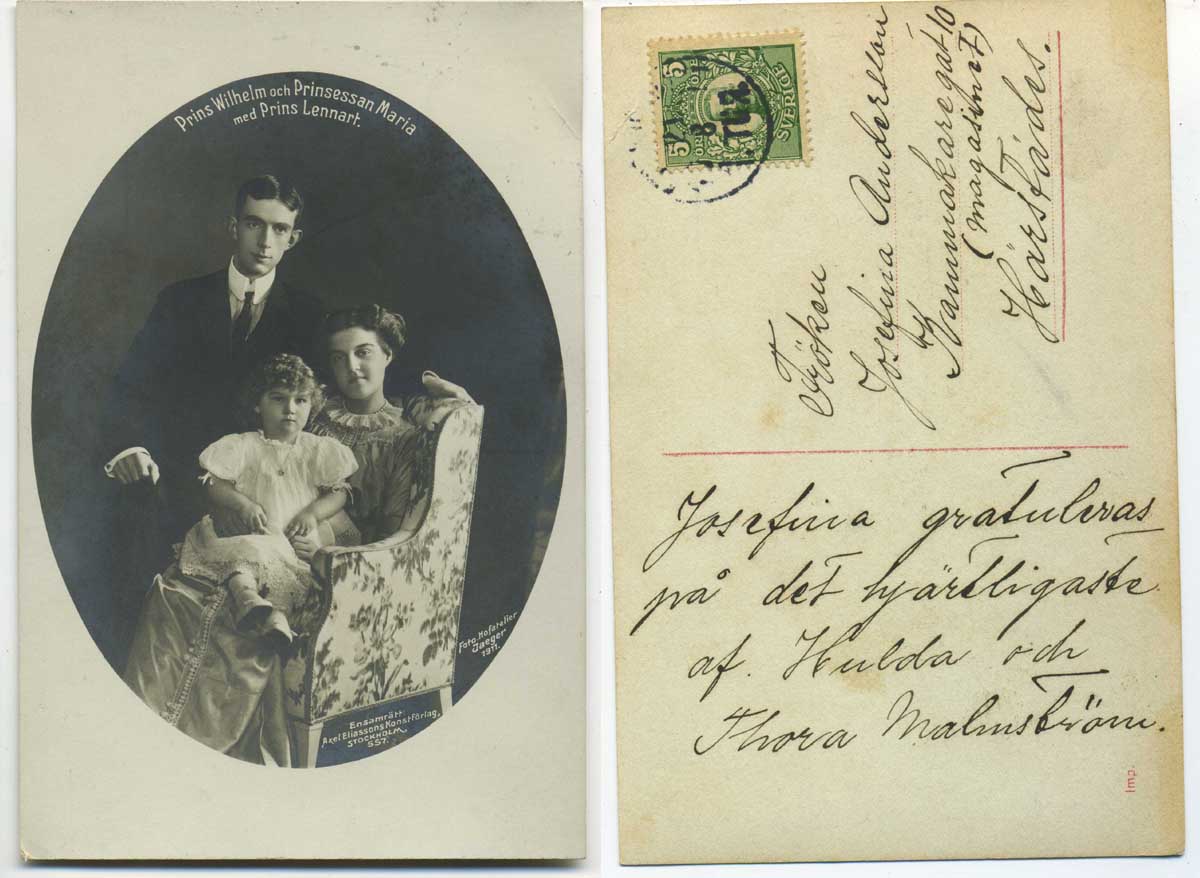 Prins Wilhelm och Prinsessan Maria
med Prins Lennart.
Foto. Hofatelier
Jaeger
1911.
Ensamrätt:
Axel Eliassons Konstförlag,
STOCKHOLM.
557.
5 ÖRE ÖRE 5
SVERIGE
8
Fröken
Josefina Andersson
Kammakaregat 10
(magasinet)
Härstädes.
Josefina gratuleras
på det hjärtligaste
af. Hulda och
Thora Malmström.
Imp.